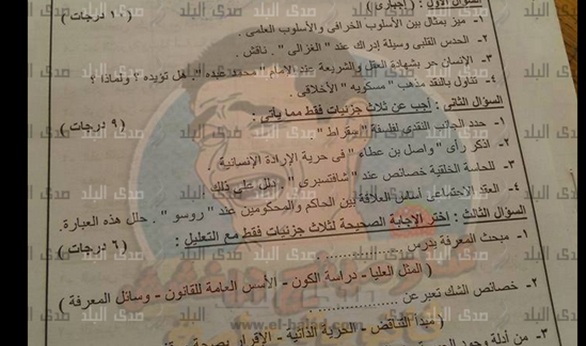 السؤال الأول : ( إجبارى ) ( ١٠ درجات )
١- ميز بمثال بين الأسلوب الخرافى والأسلوب العلمى .
٢- الحدس القلبى وسيلة إدراك عند " الغزالى " . ناقش .
٣- الإنسان حر بشهادة العقل والشريعة عند الإمام " محمد عبده ". هل تؤيده ؟ ولماذا ؟
٤- تناول بالنقد مذهب " مسكويه " الأخلاقى .
السؤال الثانى : أجب عن ثلاث جزئيات فقط مما يأتى : ( ٩ درجات )
١- حدد الجانب النقدى لفلسفة " سقراط " .
٢- اذكر رأى " واصل بن عطاء " فى حرية الإرادة الإنسانية
٣- للحاسة الخلقية خصائص عند " شافتسبرى " . دلل على ذلك
٤- العقد الاجتماعى أساس العلاقة بين الحاكم والمحكومين عند " روسو " . حلل هذه العبارة.
السؤال الثالث : اختر الإجابة الصحيحة لثلاث جزئيات فقط مع التعليل : ( ٦ درجات )
١- مبحث المعرفة يدرس ..................
( المثل العليا - دراسة الكون - الأسس العامة للقانون - وسائل المعرفة )
٢- خصائص الشك تعبر عن ..................
( مبدأ التناقض - الحرية الذاتية - الإقرار بصحة
٣- من أدلة وجود
صدى البلد